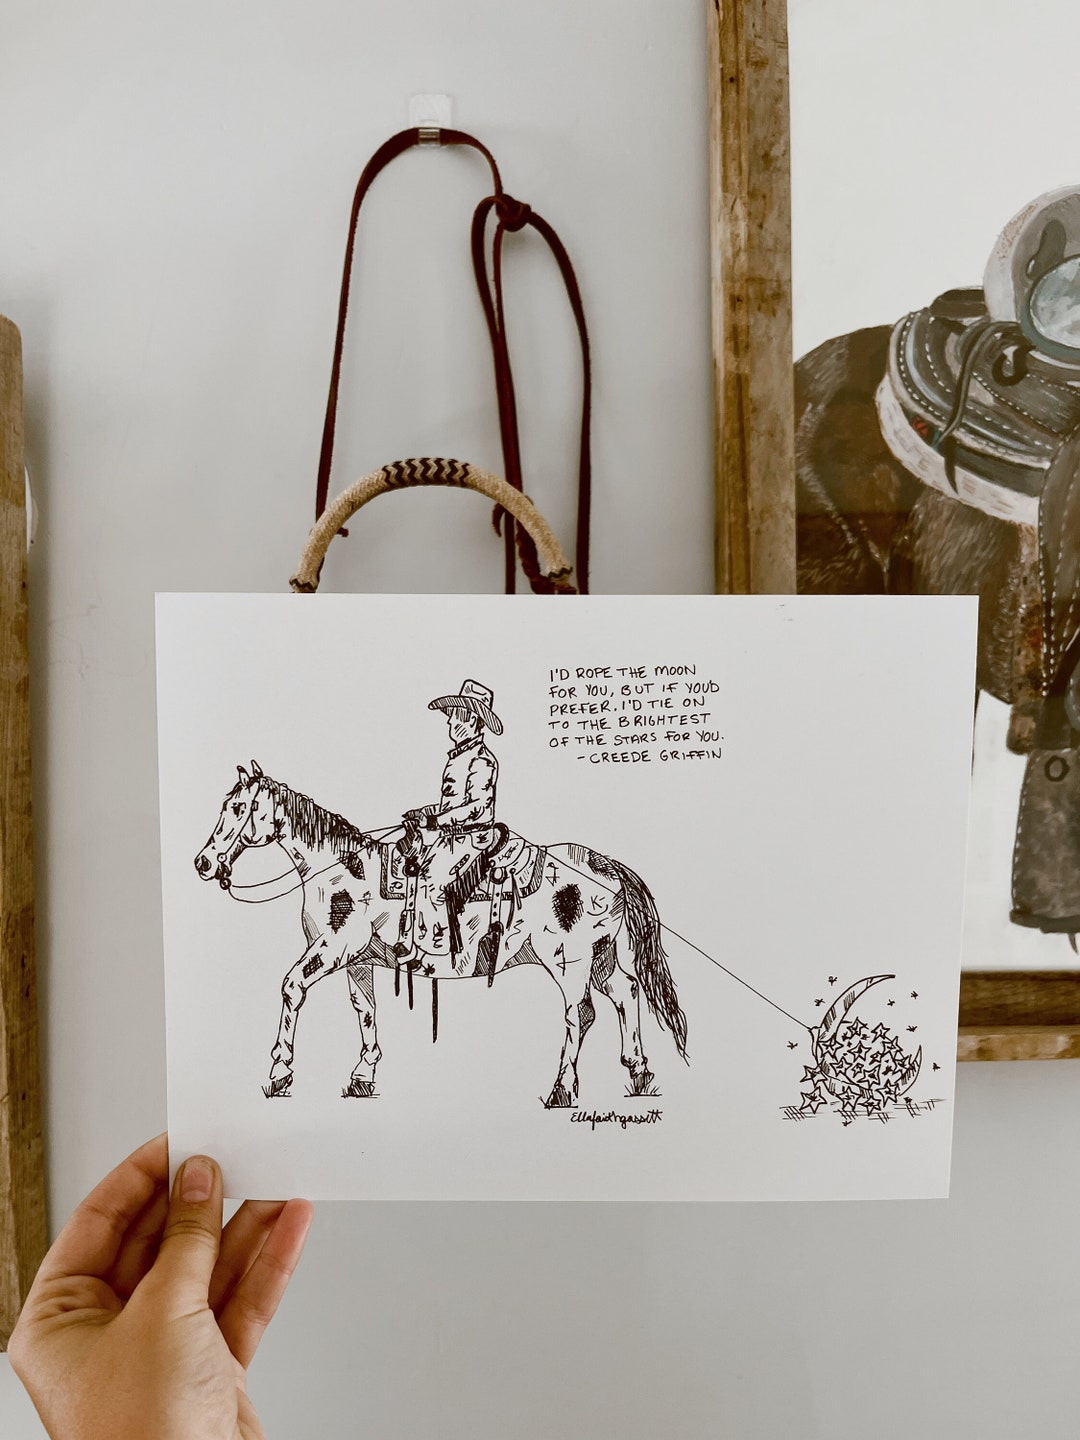 I'D ROPE THE MOON
FOR YOU, BUT IF YOU'D
PREFER. I'D TIE ON
TO THE BRIGHTEST
OF THE STARS FOR YOU.
- CREEDE GRIFFIN
Ellafaithgassett